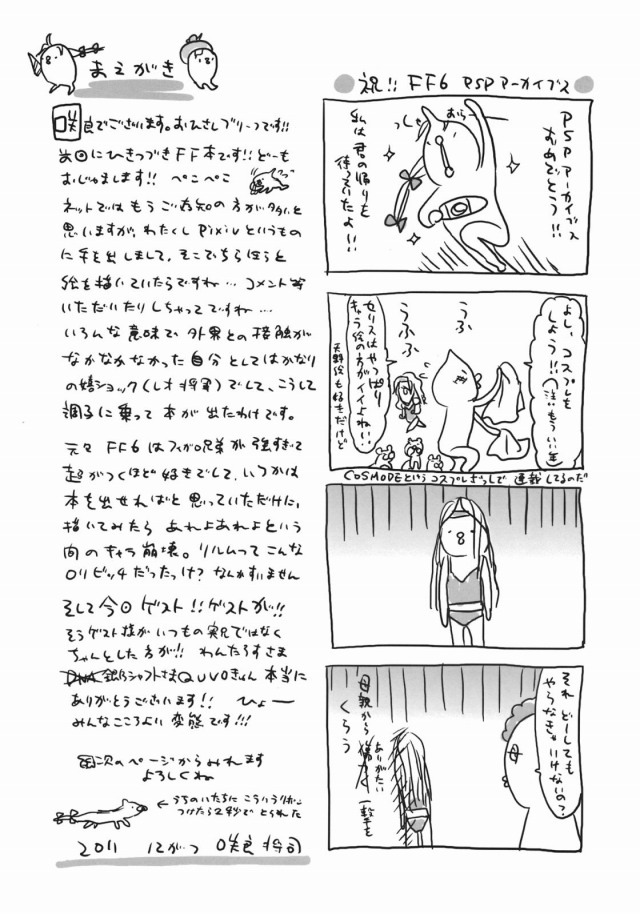 まえがき
咲良でございます。おひさしブリーフです!!
前回にひきつづきFF本です!!どーも
おじゃまします!! ペこペこ
ネットではもうご存知の方が多いと
思いますが、わたくしPixivというもの
に手を出しまして、そこでちらほらと
絵を描いていたらですね… コメント等
いただいたりしちゃってですね…
いろんな意味で、外界との接触が
なかなかなかった自分としてはかなり
の嬉ショック(レオ将軍)でして、こうして
調子に乗って本が出たわけです。
元々FF6はフィガロ兄弟が強すぎて
超がつくほど好きでして、いつかは
本を出せればと思っていただけに、
描いてみたらあれよあれよという
間のキャラ崩壊。リルムってこんな
ロリビッチだったっけ?なんかすいません
そして今回ゲスト!!ゲストが!!
そうゲスト様がいつもの実兄ではなく
ちゃんとした方が!! わんたろすさま
銀乃シャフトさまQUVOきょん 本当に
ありがとうございます!! ひょー
みんなこころよい変態です!!!
次のページからみれます
よろしくね
←うちのいたちにこういう
つけたら2秒でとられた
2011 12がつ 咲良 将司
祝!! FF6 PSPアーカイブス
PSPアーカイブス
おめでとう!!
おらっしゃ
私は君の帰りを
待っていたよ!!
よし、コスプレも
しよう!!(注:もういい年
うふ
うふふ
セリスはやっぱり
キャラ絵の方がイイよねぃ!
天野絵も好きだけど
COSMODEというコスプレざっしで連載してるのだ
それどーしても
やらなきゃいけないの?
母親から
ありがたい
一撃を
くらう